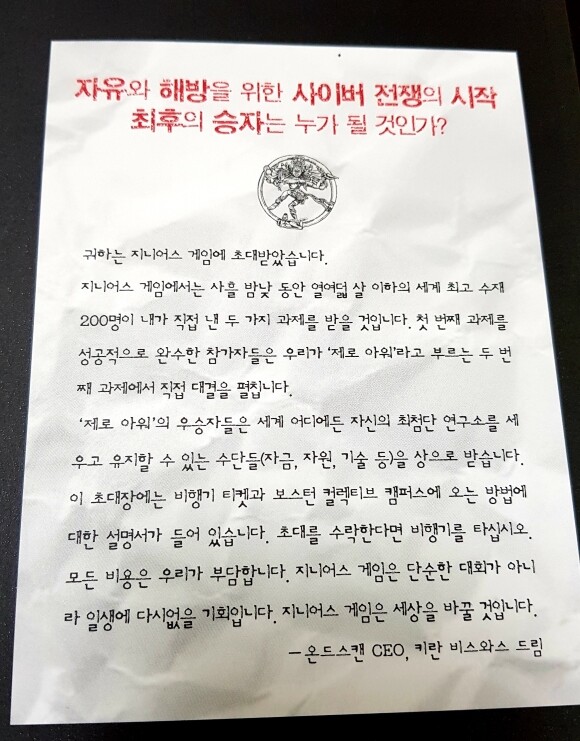 자유와 해방을 위한 사이버 전쟁의 시작
최후의 승자는 누가 될 것인가?
귀하는 지니어스 게임에 초대받았습니다.
지니어스 게임에서는 사흘 밤낮 동안 열여덟 살 이하의 세계 최고 수재
200명이 내가 직접 낸 두 가지 과제를 받을 것입니다. 첫 번째 과제를
성공적으로 완수한 참가자들은 우리가 '제로 아워'라고 부르는 두 번
째 과제에서 직접 대결을 펼칩니다.
'제로 아워'의 우승자들은 세계 어디에든 자신의 최첨단 연구소를 세
우고 유지할 수 있는 수단들(자금, 자원, 기술 등)을 상으로 받습니다.
이 초대장에는 비행기 티켓과 보스턴 컬렉티브 캠퍼스에 오는 방법에
대한 설명서가 들어 있습니다. 초대를 수락한다면 비행기를 타십시오.
모든 비용은 우리가 부담합니다. 지니어스 게임은 단순한 대회가 아니
라 일생에 다시없을 기회입니다. 지니어스 게임은 세상을 바꿀 것입니다.
－온드스캔 CEO, 키란 비스와스 드림